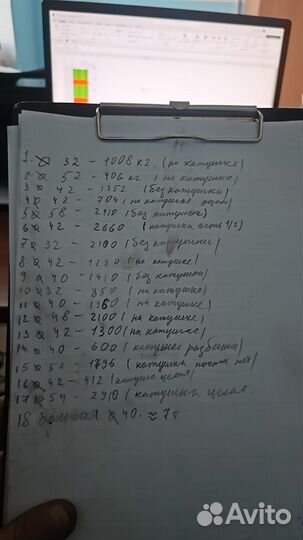 1. ⌀ 32 - 1008 кг. (на катушке)
2 ⌀ 52 - 406 кг (на катушке)
3 ⌀ 42 - 1352 (без катушки)
4 ⌀ 42 - 704 (на катушке
5 ⌀ 58 - 2410 (без катушки)
6 ⌀ 42 - 2660 (катушка есть 1/2)
7 ⌀ 32 - 2100 (без катушки)
8 ⌀ 42 - 1230 (на катушке)
9 ⌀ 40 - 1410 (без катушки)
10 ⌀ 32 - 850 (на катушке)
11 ⌀ 40 - (на катушке)
12 ⌀ 48 - 2100 (на катушке)
13 ⌀ 42 - 1300 (на катушке)
14 ⌀ 40 - 600 (катушка разбита)
15 ⌀ 52 - 1796 (катушка почти нет)
16 ⌀ 42 - 412 (катушка целая)
17 ⌀ 54 - 2910 (катушка целая.
18 большая ⌀ 40. ≈ 7т
Avito